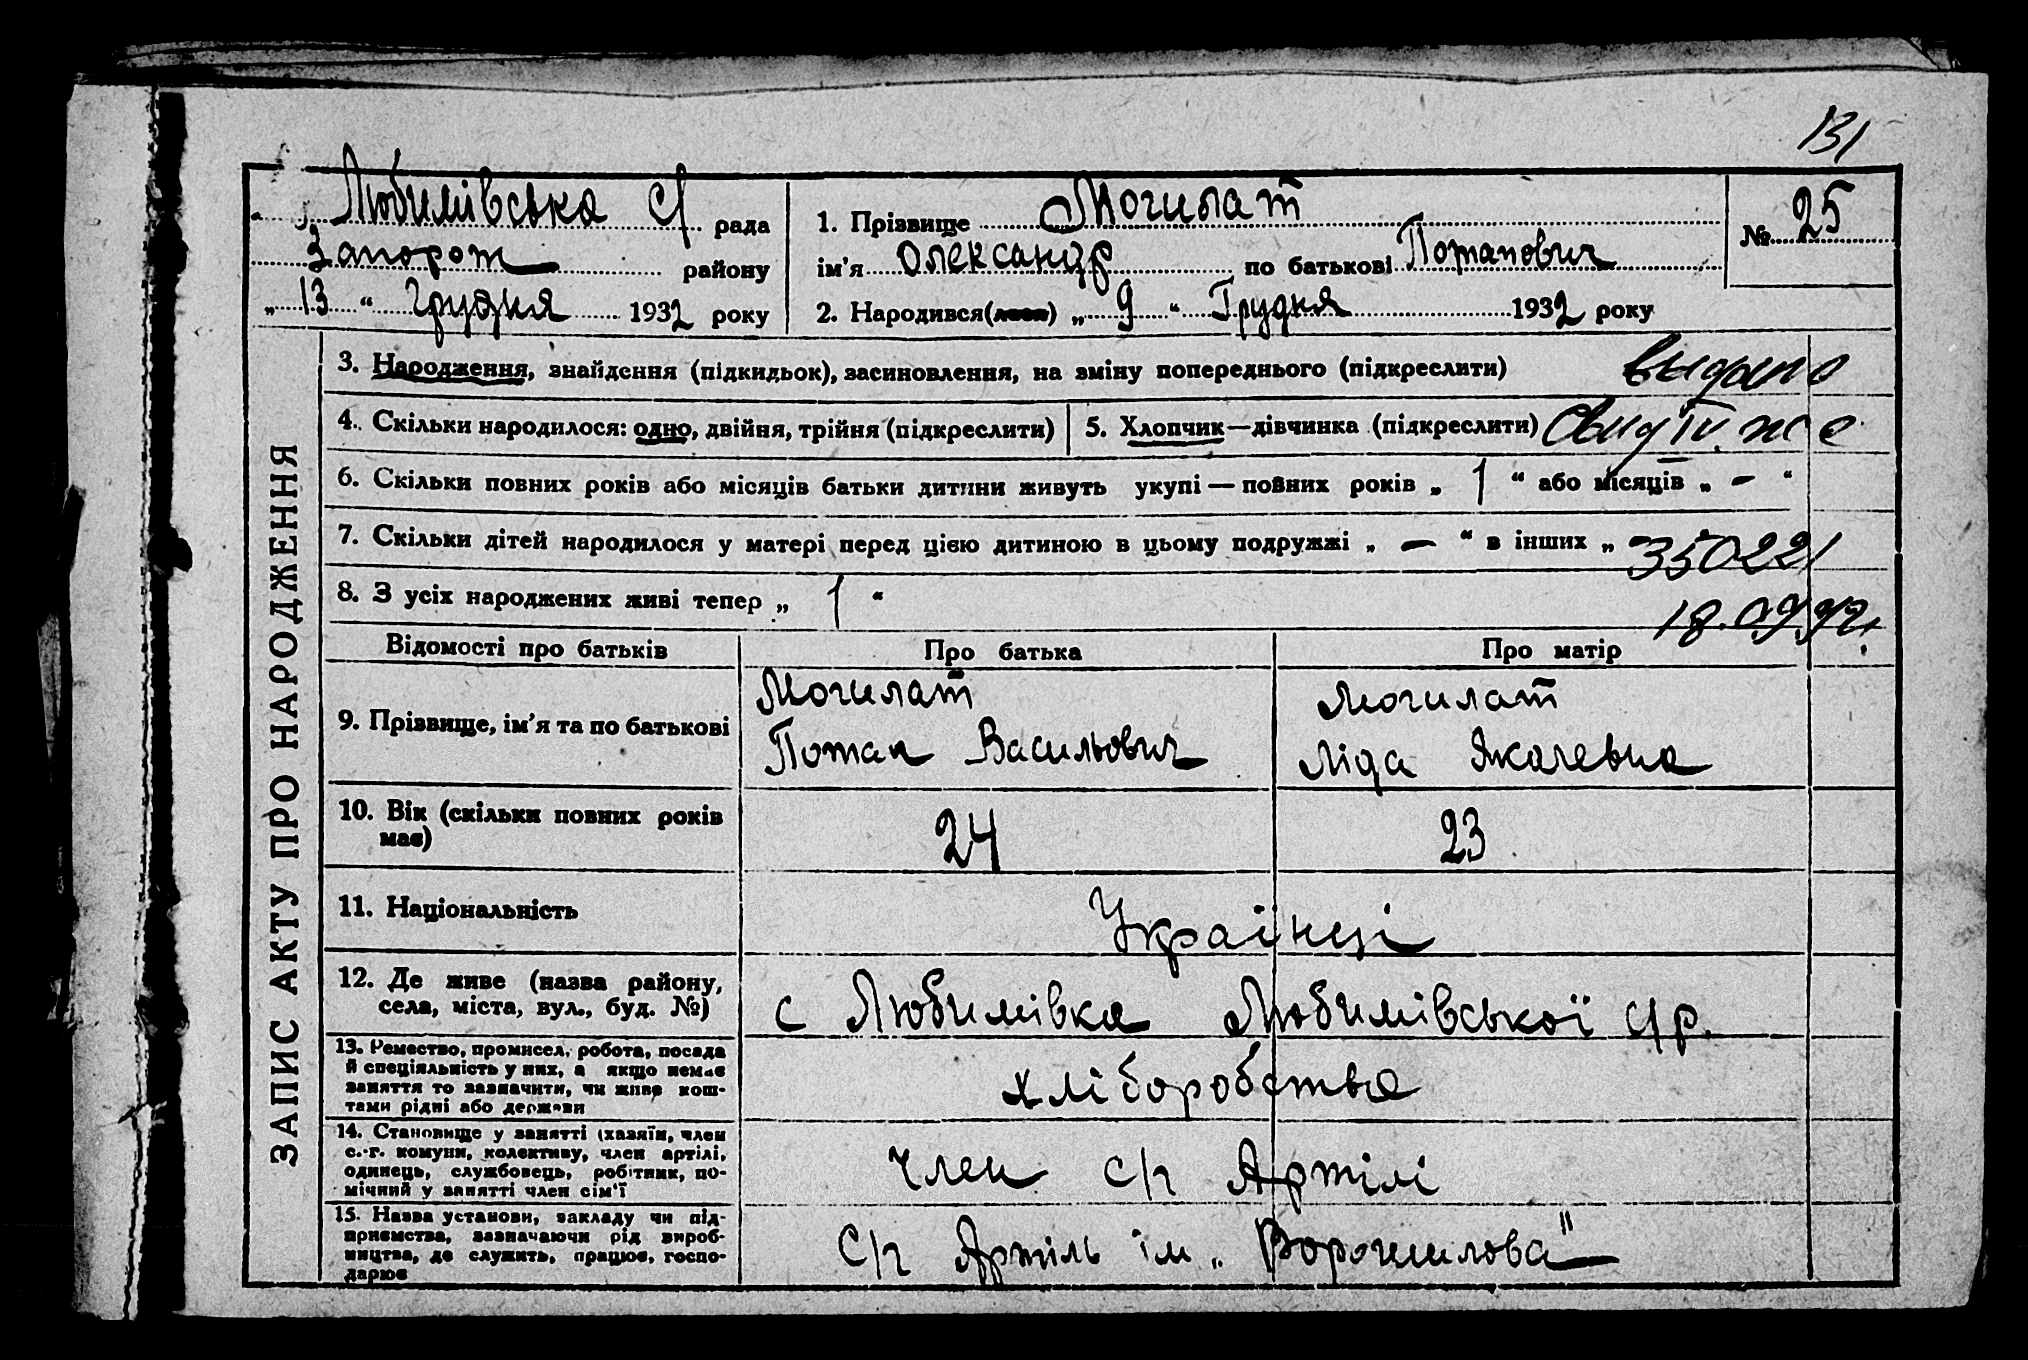 131
Любимівська С/ рада
Запорож району
„ 13 “ Грудня 1932 року
1. Прізвище Могилат
ім’я Олександр по батькові Потапович
2. Народився(лася) „ 9 “ Грудня 1932 року
№ 25
ЗАПИС АКТУ ПРО НАРОДЖЕННЯ
3. Народження, знайдення (підкидьок), засиновлення, на зміну попереднього (підкреслити)
видано
4. Скільки народилося: одно, двійня, трійня (підкреслити)
5. Хлопчик—дівчинка (підкреслити)
Свид IV. ЖС
6. Скільки повних років або місяців батьки дитини живуть укупі — повних років „ 1 “ або місяців „ – “
7. Скільки дітей народилося у матері перед цією дитиною в цьому подружжі „ — “ в інших „ –
350221
8. З усіх народжених живі тепер „ 1 “
18.09.92г.
Відомості про батьків Про батька Про матір
9. Прізвище, ім’я та по батькові
Могилат
Потап Васильович
Могилат
Ліда Якалевна
10. Вік (скільки повних років
має)
24
23
11. Національність
Українці
12. Де живе (назва району,
села, міста, вул., буд. №)
с Любимівка Любимівської с/р.
13. Ремество, промисел, робота, посада
й спеціяльність у них, а якщо немає
заняття то зазначити, чи живе кош-
тами рідні або держави
хліборобства
14. Становище у занятті (хазяїн, член
с.-г. комуни, колективу, член артілі,
одинець, службовець, робітник, по-
мічний у занятті член сім’ї
Член с/г Артілі
15. Назва установи, закладу чи під-
приємства, зазначаючи рід вироб-
ництва, де служить, працює, госпо-
дарює
С/г Артіль ім „Ворошилова"